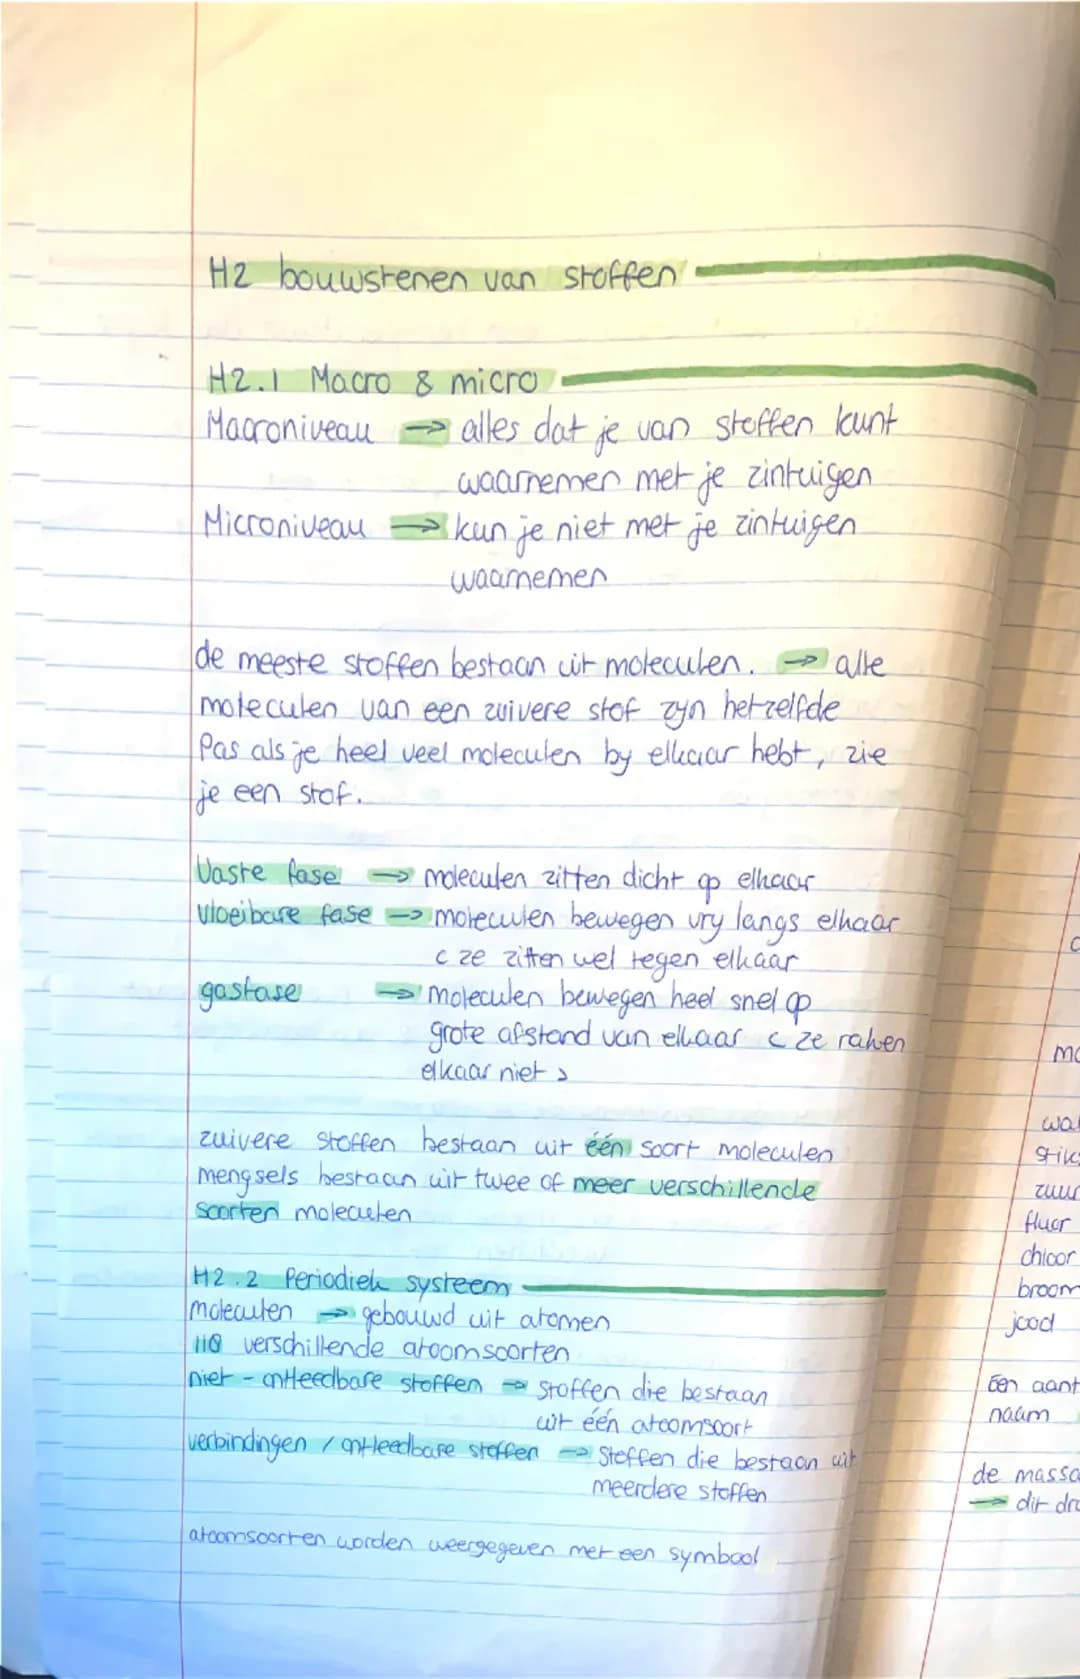 H2 bouwstenen van stoffen
H2.1 Macro & micro
Macroniveau → alles dat je van stoffen kunt
waarnemen met je zintuigen
Microniveau → kun je niet met je zintuigen
waarnemen
de meeste stoffen bestaan uit moleculen. → alle
moleculen van een zuivere stof zijn hetzelfde
Pas als je heel veel moleculen bij elkaar hebt, zie
je een stof.
Vaste fase → moleculen zitten dicht op elkaar
vloeibare fase → moleculen bewegen vrij langs elkaar
( ze zitten wel tegen elkaar
gasfase → moleculen bewegen heel snel op
grote afstand van elkaar ( ze raken
elkaar niet )
zuivere stoffen bestaan uit één soort moleculen
mengsels bestaan uit twee of meer verschillende
soorten moleculen
H2.2 Periodiek systeem
moleculen → gebouwd uit atomen
118 verschillende atoomsoorten
niet-ontleedbare stoffen → stoffen die bestaan
uit één atoomsoort
verbindingen / ontleedbare stoffen → stoffen die bestaan uit
meerdere stoffen
atoomsoorten worden weergegeven met een symbool
fluor
chloor
broom
jood
een aant
naam
de massa
→ dit